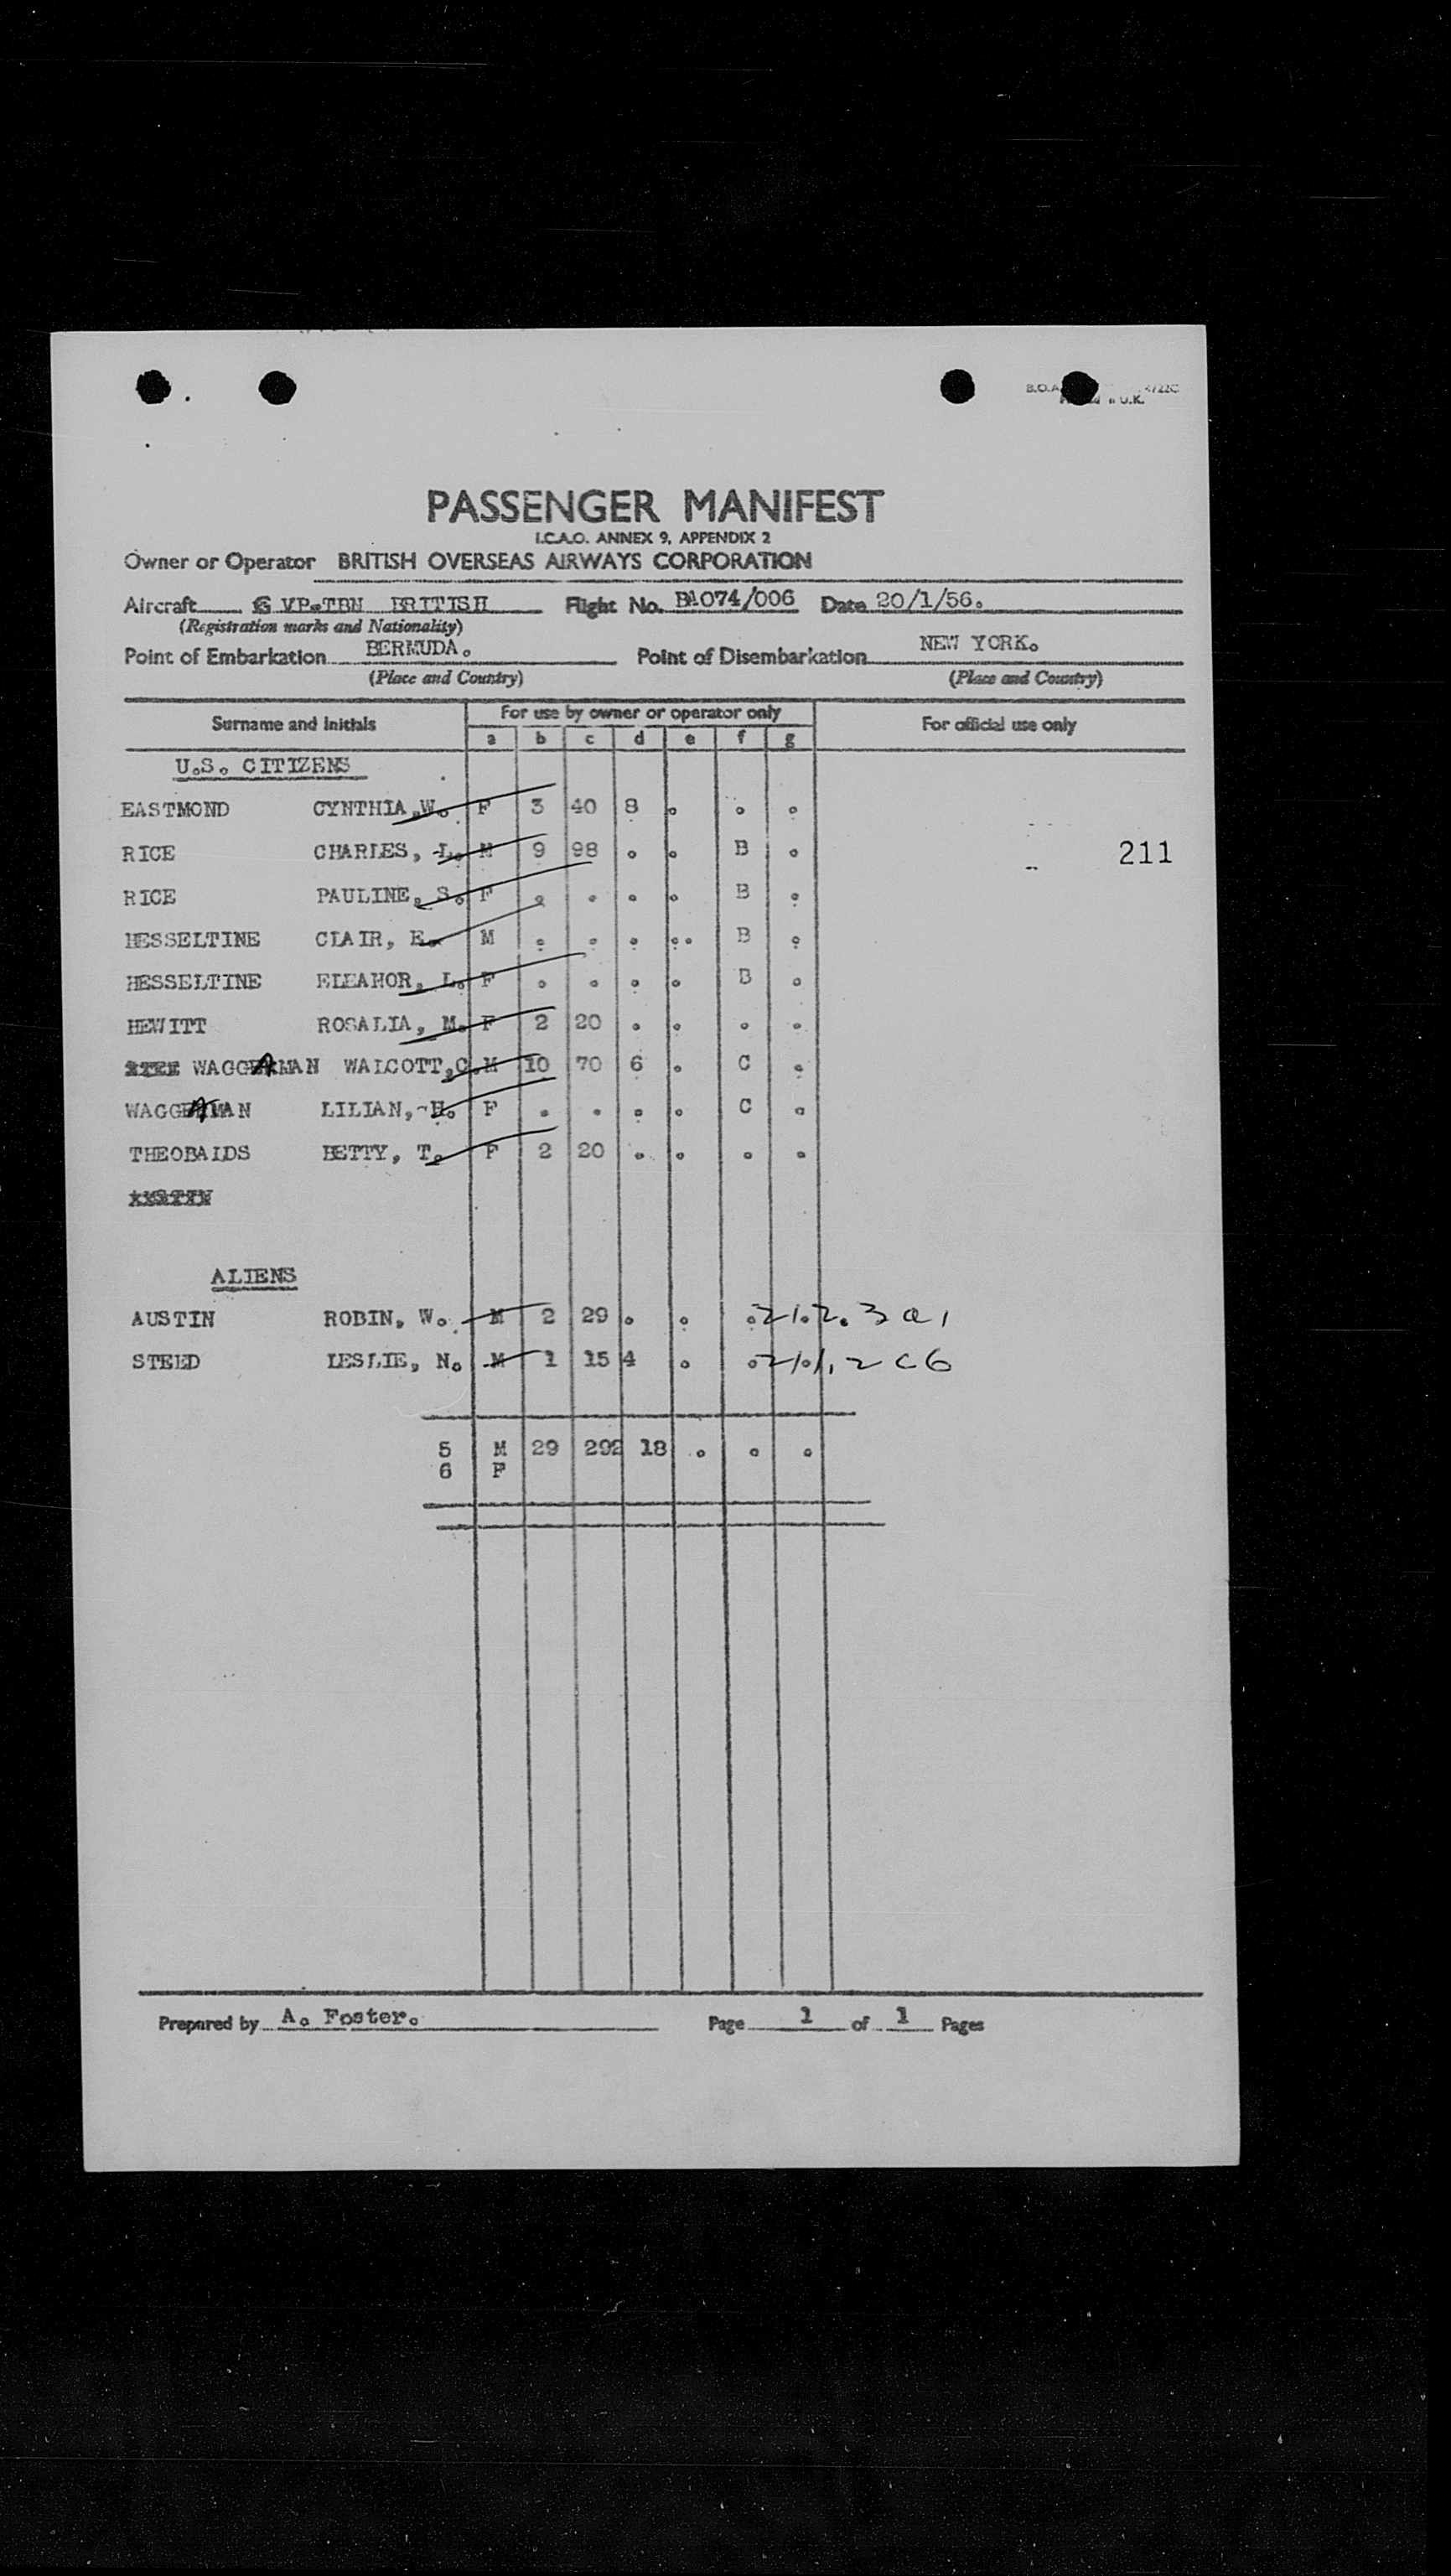 B.O.A
U.K.
PASSENGER MANIFEST
I.C.A.O. ANNEX 9, APPENDIX 2
Owner or Operator BRITISH OVERSEAS AIRWAYS CORPORATION
Aircraft VP.TBN BRITISH Flight No. BA074/006 Date 20/1/56.
(Registration marks and Nationality)
Point of Embarkation BERMUDA. Point of Disembarkation NEW YORK.
(Place and Country) (Place and Country)
Surname and Initials For use by owner or operator only For official use only
a b c d e f g
U.S. CITIZENS
EASTMOND CYNTHIA.W. F 3 40 8 . . .
RICE CHARLES, L. M 9 98 . . B . 211
RICE PAULINE, S. F . . . . B .
HESSELTINE CLAIR, E. M . . . .. B .
HESSELTINE ELEANOR, L. F . . . . B .
HEWITT ROSALIA, M. F 2 20 . . . .
WAGGAMAN WALCOTT,C.M 10 70 6 . C .
WAGGAMAN LILIAN, H. F . . . . C .
THEOBALDS BETTY, T. F 2 20 . . . .
ALIENS
AUSTIN ROBIN, W. M 2 29 . . . 21.2.3 a1
STEED LESLIE, N. M 1 15 4 . . 21.1.2 C6
5 M 29 292 18 . . .
6 F
Prepared by A. Foster. Page 1 of 1 Pages